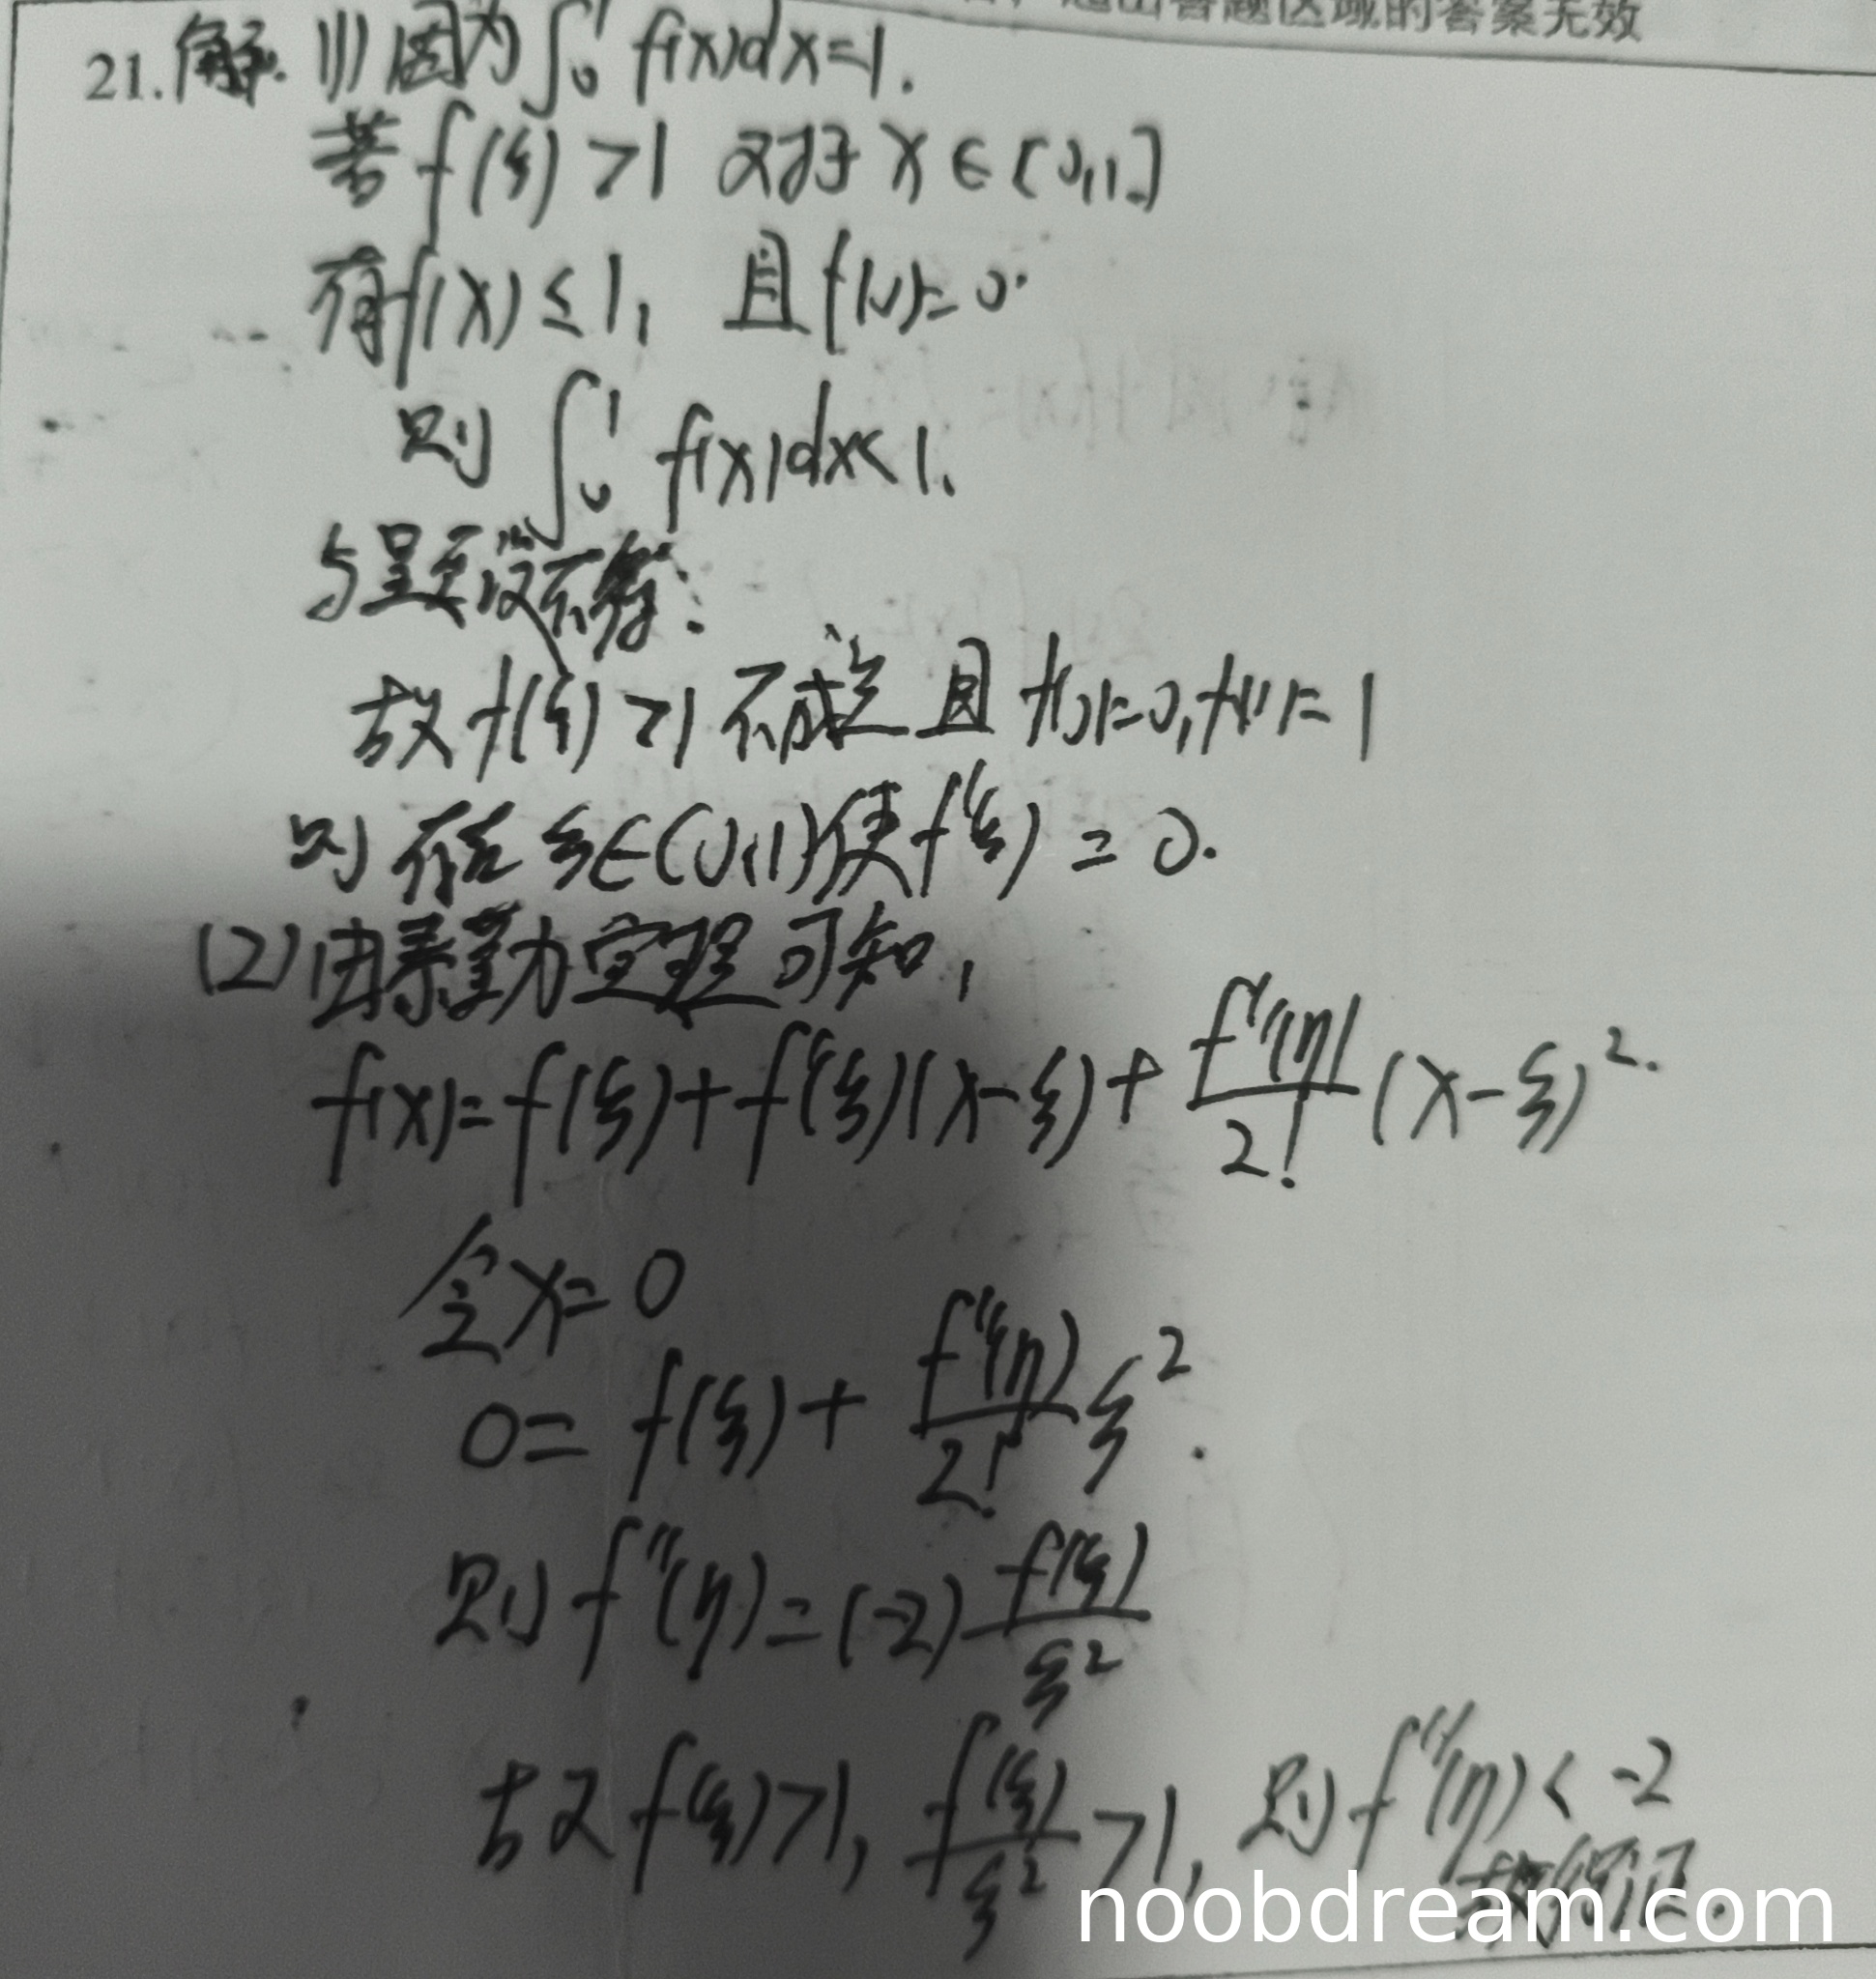 超出答题区域的答案无效
21. 解. (1) 因为 ∫₀¹ f(x)dx=1.
若 f(ξ) >1 对于 x ∈ [0,1]
有 f(x) ≤ 1, 且 f(0)=0.
则 ∫₀¹ f(x)dx<1.
与题设不符.
故 f(ξ) >1 不成立 且 f(0)=0, f(1)=1
则 存在 ξ∈(0,1) 使 f'(ξ) = 0.
(2) 由泰勒定理可知,
f(x)=f(ξ)+f'(ξ)(x-ξ)+f''(η)/2!(x-ξ)².
令 x=0
0= f(ξ)+ f''(η)/2! ξ².
则 f''(η)=(-2) f(ξ)/ξ²
故 f(ξ)>1, f(ξ)/ξ² >1, 则 f''(η)< -2
故得证.
noobdream.com